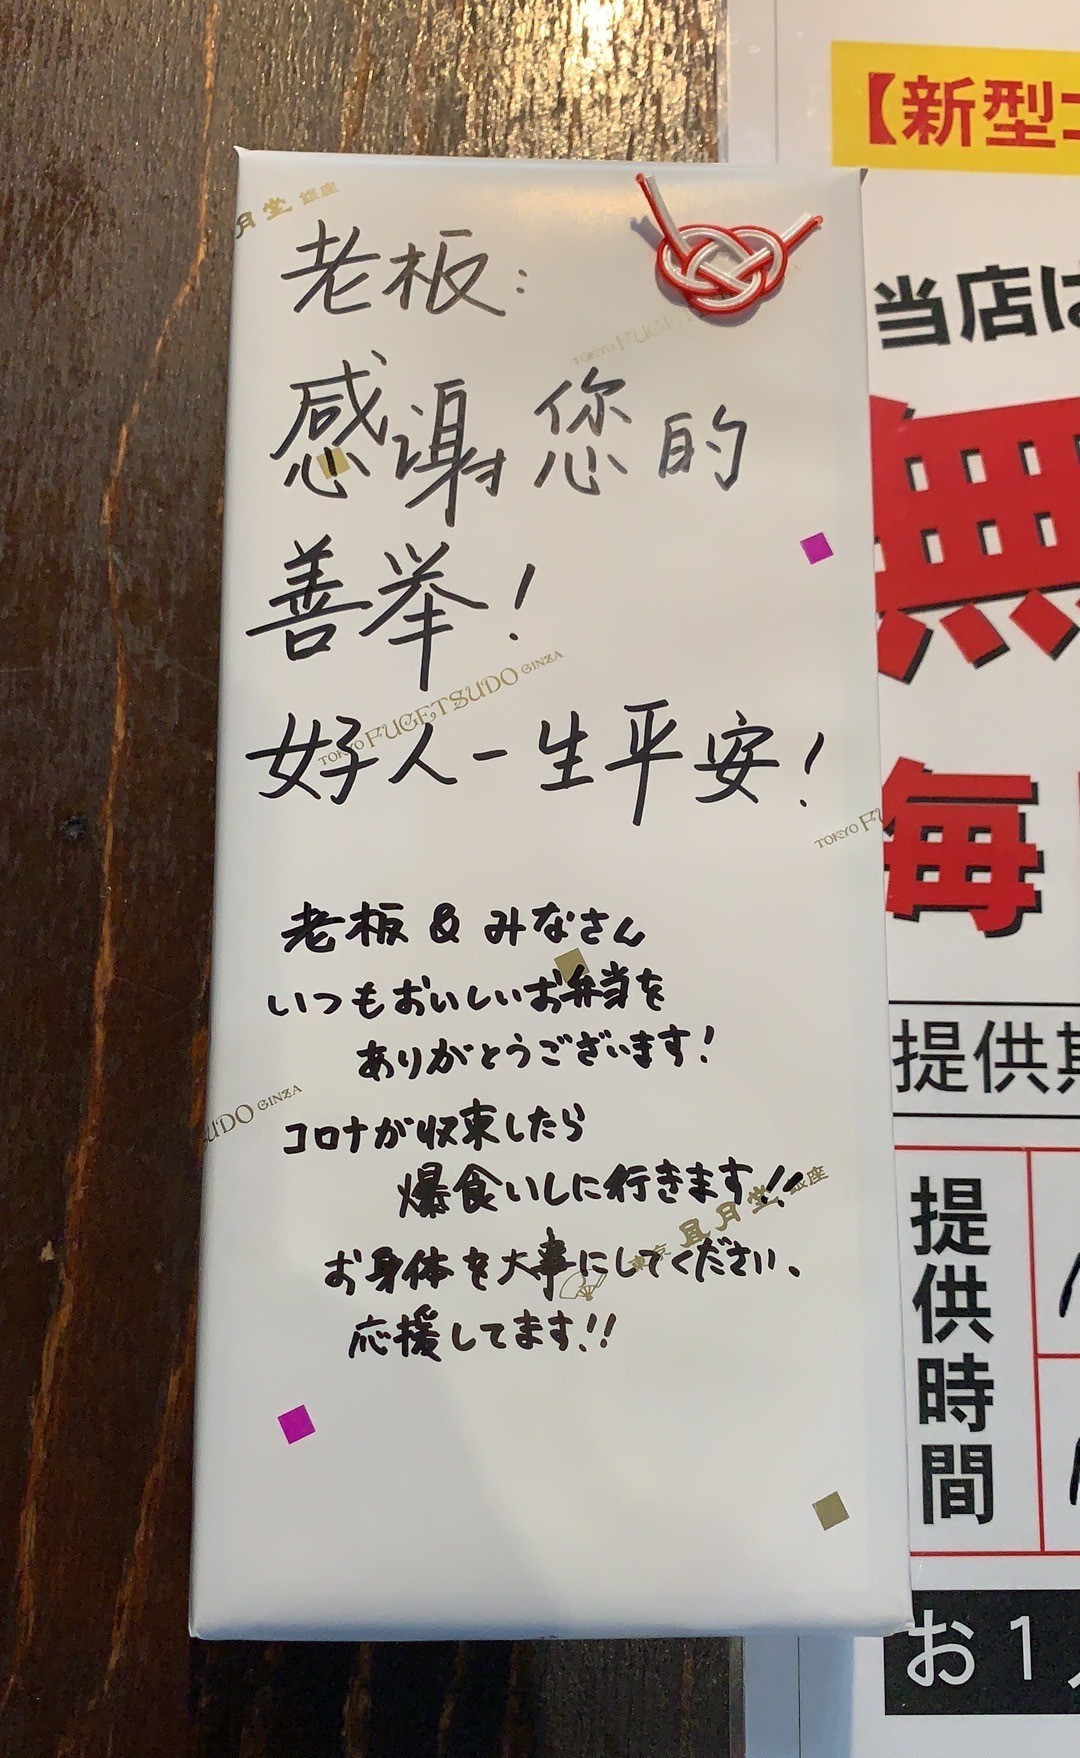 月堂 銀座
老板:
感谢您的
善举!
好人一生平安!
老板 & みなさん
いつもおいしいお弁当を
ありがとうございます!
コロナが収束したら
爆食いしに行きます!!
お身体を大事にしてください、
応援してます!!
TOKYO FUGETSUDO GINZA
TOKYO FU
UDO GINZA
東京 凮月堂 銀座
【新型コ
当店は
無
毎
提供期
提供時間
お1人